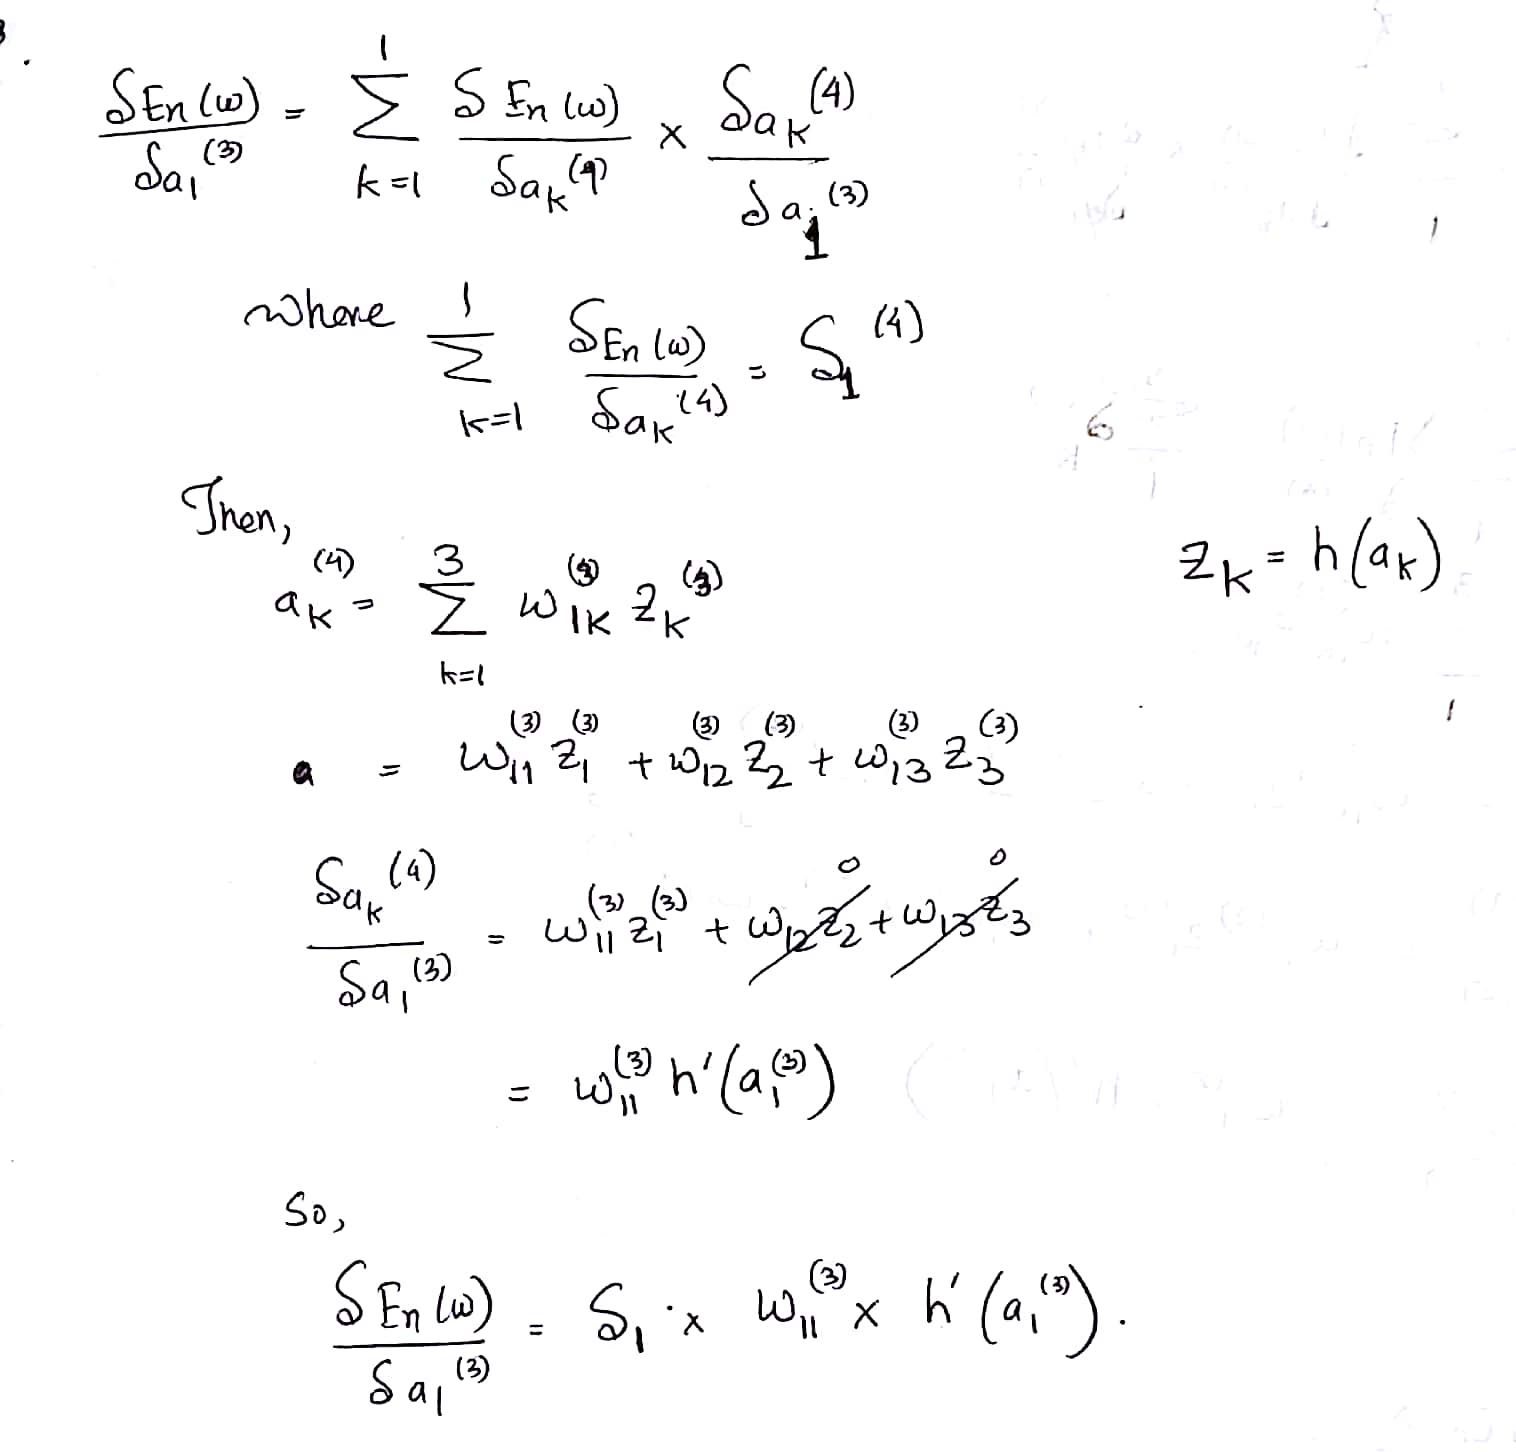 δEn(w)/δa₁⁽³⁾ = Σₖ₌₁¹ δEn(w)/δaₖ⁽⁴⁾ × δaₖ⁽⁴⁾/δa₁⁽³⁾
where Σₖ₌₁¹ δEn(w)/δaₖ⁽⁴⁾ = δ₁⁽⁴⁾
Then,
aₖ⁽⁴⁾ = Σₖ₌₁³ w₁ₖ⁽³⁾ zₖ⁽³⁾
zₖ = h(aₖ)
a = w₁₁⁽³⁾ z₁⁽³⁾ + w₁₂⁽³⁾ z₂⁽³⁾ + w₁₃⁽³⁾ z₃⁽³⁾
δaₖ⁽⁴⁾/δa₁⁽³⁾ = w₁₁⁽³⁾ z₁⁽³⁾ + w₁₂z₂ 0 + w₁₃z₃ 0
= w₁₁⁽³⁾ h'(a₁⁽³⁾)
So,
δEn(w)/δa₁⁽³⁾ = δ₁ × w₁₁⁽³⁾ × h'(a₁⁽³⁾).